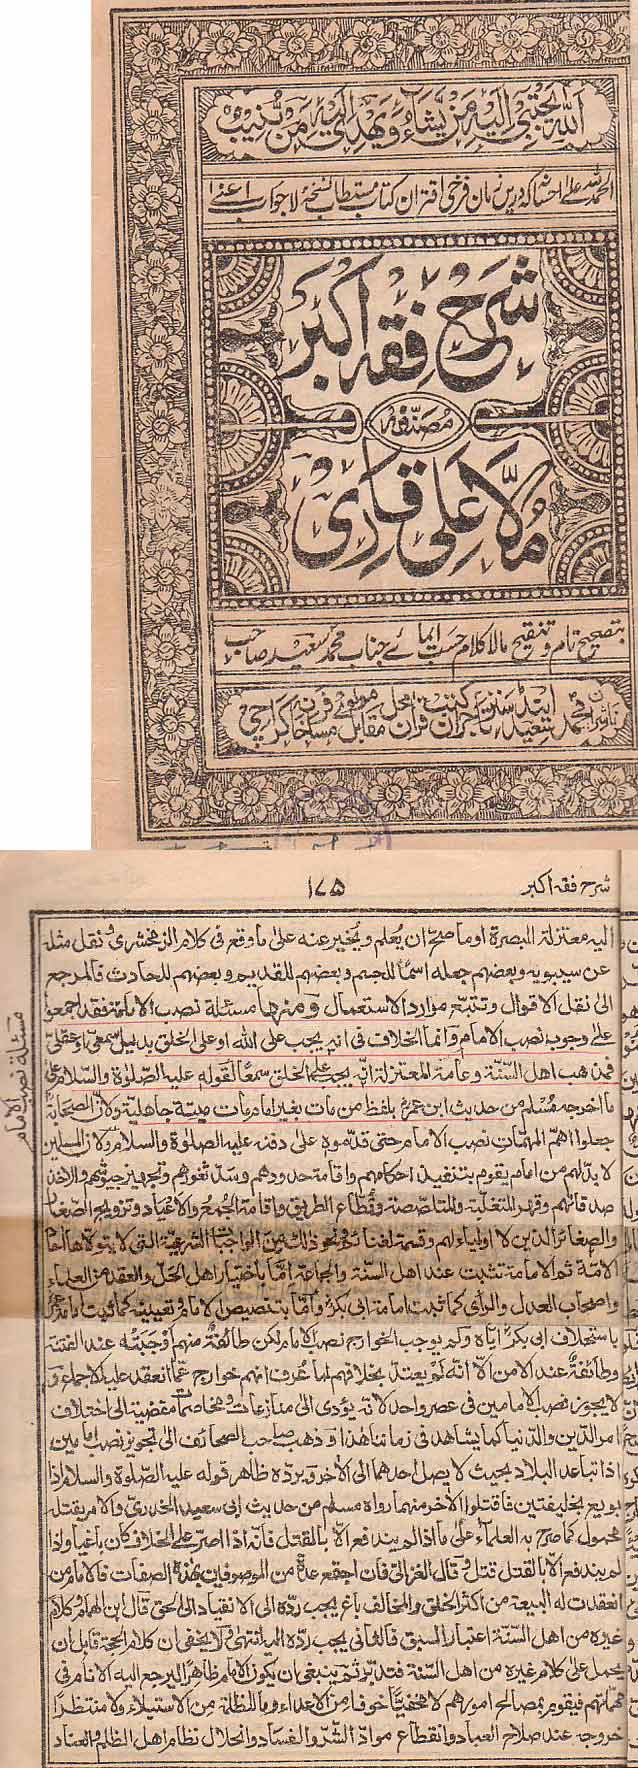 الله يجتبي اليه من يشاء ويهدي اليه من ينيب
الحمد لله على احسانه كه درين زمان فرخی اقتران كتاب مستطاب نسخۂ لاجواب اعنی
شرح فقه اكبر
مصنفه
ملا علی قاری
بتصحيح تام وتنقيح مالا كلام حسب ايمائے جناب محمد سعيد صاحب
ناشران محمد سعيد اينڈ سنز تاجران كتب قرآن محل مقابل مولوی مسافر خانہ كراچی
شرح فقه اكبر
١٧٥
اليه معتزلة البصرة او ما صح ان يعلم ويخبر عنه على ما وقع فى كلام الزمخشرى ونقل مثله
عن سيبويه وبعضهم جعله اسما للجسم وبعضهم للقديم وبعضهم للحادث فالمرجع
الى نقل الاقوال وتتبع موارد الاستعمال ومنها مسئلة نصب الامام فقد اجمعوا
على وجوب نصب الامام وانما الخلاف فى انه يجب على الله او على الخلق بدليل سمعى او عقلى
فمذهب اهل السنة وعامة المعتزلة انه يجب على الخلق سمعا لقوله عليه الصلوة والسلام على
ما اخرجه مسلم من حديث ابن عمر بلفظ من مات بغير امام مات ميتة جاهلية ولان الصحابة
جعلوا اهم المهمات نصب الامام حتى قدموه على دفنه عليه الصلوة والسلام ولان المسلمين
لا بد لهم من امام يقوم بتنفيذ احكامهم واقامة حدودهم وسد ثغورهم وتجهيز جيوشهم واخذ
صدقاتهم وقهر المتغلبة والمتلصصة وقطاع الطريق واقامة الجمع والاعياد وتزويج الصغار
والصغائر الذين لا اولياء لهم وقسمة الغنائم ونحو ذلك من الواجبات الشرعية التى لا يتولاها احاد
الامة ثم الامامة تثبت عند اهل السنة والجماعة اما باختيار اهل الحل والعقد من العلماء
واصحاب العدل والرأى كما ثبت امامة ابى بكر واما بتنصيص الامام وتعيينه كما ثبت امامة عمر
باستخلاف ابى بكر اياه ولم يوجب الخوارج نصب الامام لكن طائفة منهم اوجبته عند الفتنة
وطائفة عند الامن الا انه لم يعتد بخلافهم لما عرف انهم خوارج عما انعقد عليه الاجماع و
لا يجوز نصب الامامين فى عصر واحد لانه يؤدى الى منازعات ومخاصمات مفضية الى اختلاف
امر الدين والدنيا كما يشاهد فى زماننا هذا وذهب صاحب الصحائف الى تجويز نصب امامين
اذا تباعد البلاد بحيث لا يصل احدهما الى الاخر ويرده ظاهر قوله عليه الصلوة والسلام اذا
بويع بخليفتين فاقتلوا الاخر منهما رواه مسلم من حديث ابى سعيد الخدرى والامر بقتله
محمول كما صرح به العلماء على ما اذا لم يندفع الا بالقتل فانه اذا اصر على الخلاف كان باغيا واذا
لم يندفع الا بالقتل قتل وقال الغزالى فان اجتمع عدة من الموصوفين بهذه الصفات فالامام من
انعقدت له البيعة من اكثر الخلق والمخالف باغ يجب رده الى الانقياد الى الحق قال ابن الهمام وكلام
غيره من اهل السنة اعتبار السبق فالثانى يجب رده اليه انتهى ولا يخفى ان كلام الحجة قابل ان
يحمل على كلام غيره من اهل السنة فتدبر ثم ينبغى ان يكون الامام ظاهرا ليرجع اليه الانام فى
مهماتهم فيقوم بمصالح امورهم لا مختفيا خوفا من الاعداء وما للظلمة من الاستيلاء ولا منتظرا
خروجه عند صلاح العباد وانقطاع مواد الشر والفساد وانحلال نظام اهل الظلم والعناد
مسئلة نصب الامام